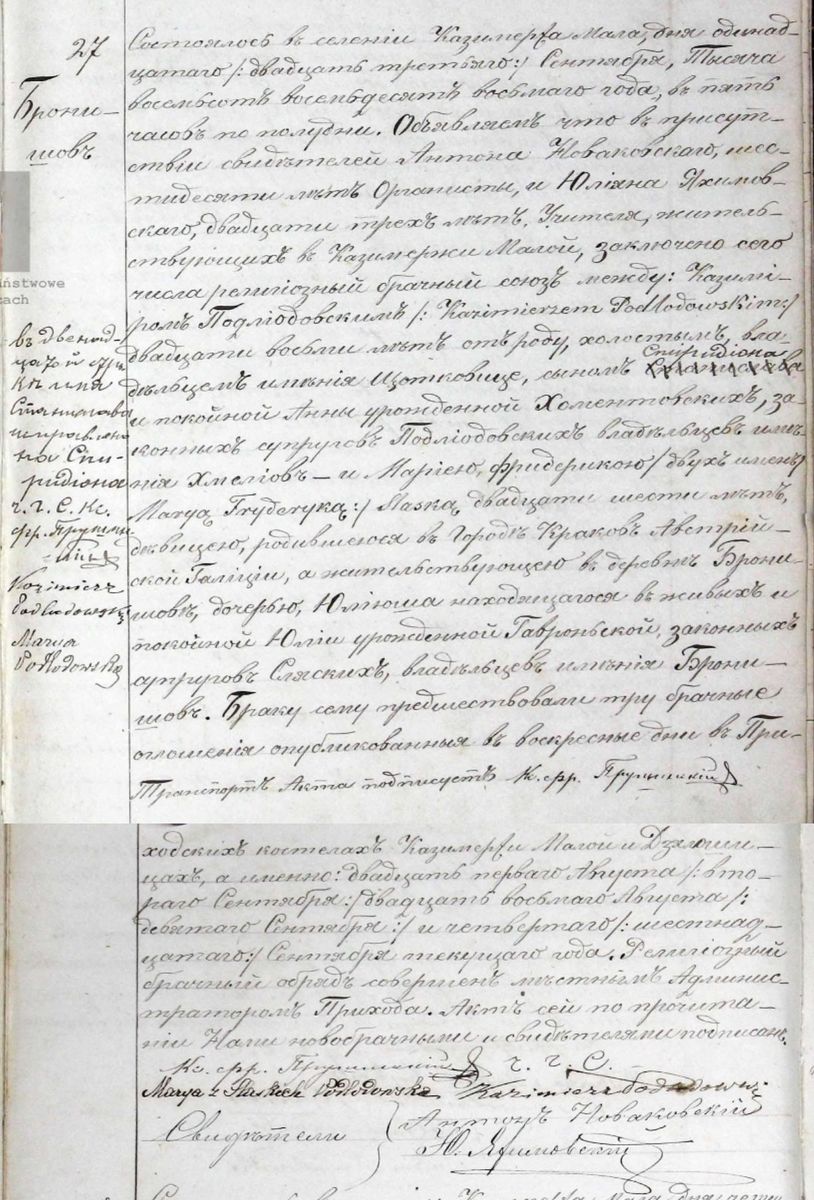 27
Брони-
шовъ
Состоялось въ селеніи Казимержа Мала, дня одинад-
цатаго /: двадцать третьяго :/ Сентября, Тысяча
восемьсотъ восемьдесятъ восьмаго года, въ пять
часовъ по полудни. Объявляемъ что въ присут-
ствіи свидѣтелей Антона Новаковскаго, шес-
тидесяти лѣтъ Органисты, и Юліяна Яхимов-
скаго, двадцати трехъ лѣтъ, Учителя, житель-
ствующихъ въ Казимержи Малой, заключено сего
числа религіозный брачный союзъ между: Казимі-
ромъ Подлюдовскимъ /: Kazimierzem Podłodowskim :/
двадцати восьми лѣтъ отъ роду, холостымъ, вла-
дѣльцемъ имѣнія Щотковице, сыномъ Спиридіона
и покойной Анны урожденной Хоментовскихъ, за-
конныхъ супруговъ Подлюдовскихъ владѣльцевъ имѣ-
нія Хмелювъ – и Маріею, Фридерикою / двухъ именъ /
Maryą Fryderyką :/ Slaską, двадцати шести лѣтъ,
дѣвицею, родившеюся въ Городѣ Краковъ Австрій-
ской Галиціи, а жительствующею въ деревнѣ Брони-
шовъ, дочерью, Юліюша находящагося въ живыхъ и
покойной Юліи урожденной Гавроньской, законныхъ
супруговъ Сласкихъ, владѣльцевъ имѣнія Брони-
шовъ. Браку сему предшествовали три брачные
оглошенія опубликованныя въ воскресные дни въ При-
Транспортъ Акта подписуетъ К. фр.
въ двенад-
цатой стро-
кѣ имя
Станислава
исправлено
на Спи-
ридіона
ч. г. С. Кс.
фр.
Kazimierz
Podłodowski
Marya
Podłodowska
ństwowe
ach
ходскихъ костелахъ Казимержи Малой и Дзялоши-
цахъ, а именно: двадцать перваго Августа /: вто-
раго Сентября :/ двадцать восьмаго Августа /:
девятаго Сентября :/ и четвертаго /: шестнад-
цатаго :/ Сентября текущаго года. Религіозный
брачный обрядъ совершенъ мѣстнымъ Админис-
траторомъ Прихода. Актъ сей по прочита-
ніи Нами новобрачными и свидѣтелями подписанъ.
Кс. фр. ч. г. С.
Marya z Slaskich Podłodowska Kazimierz Podłodowski
Свидѣтели Антонъ Новаковскій
Ю. Яхимовскій